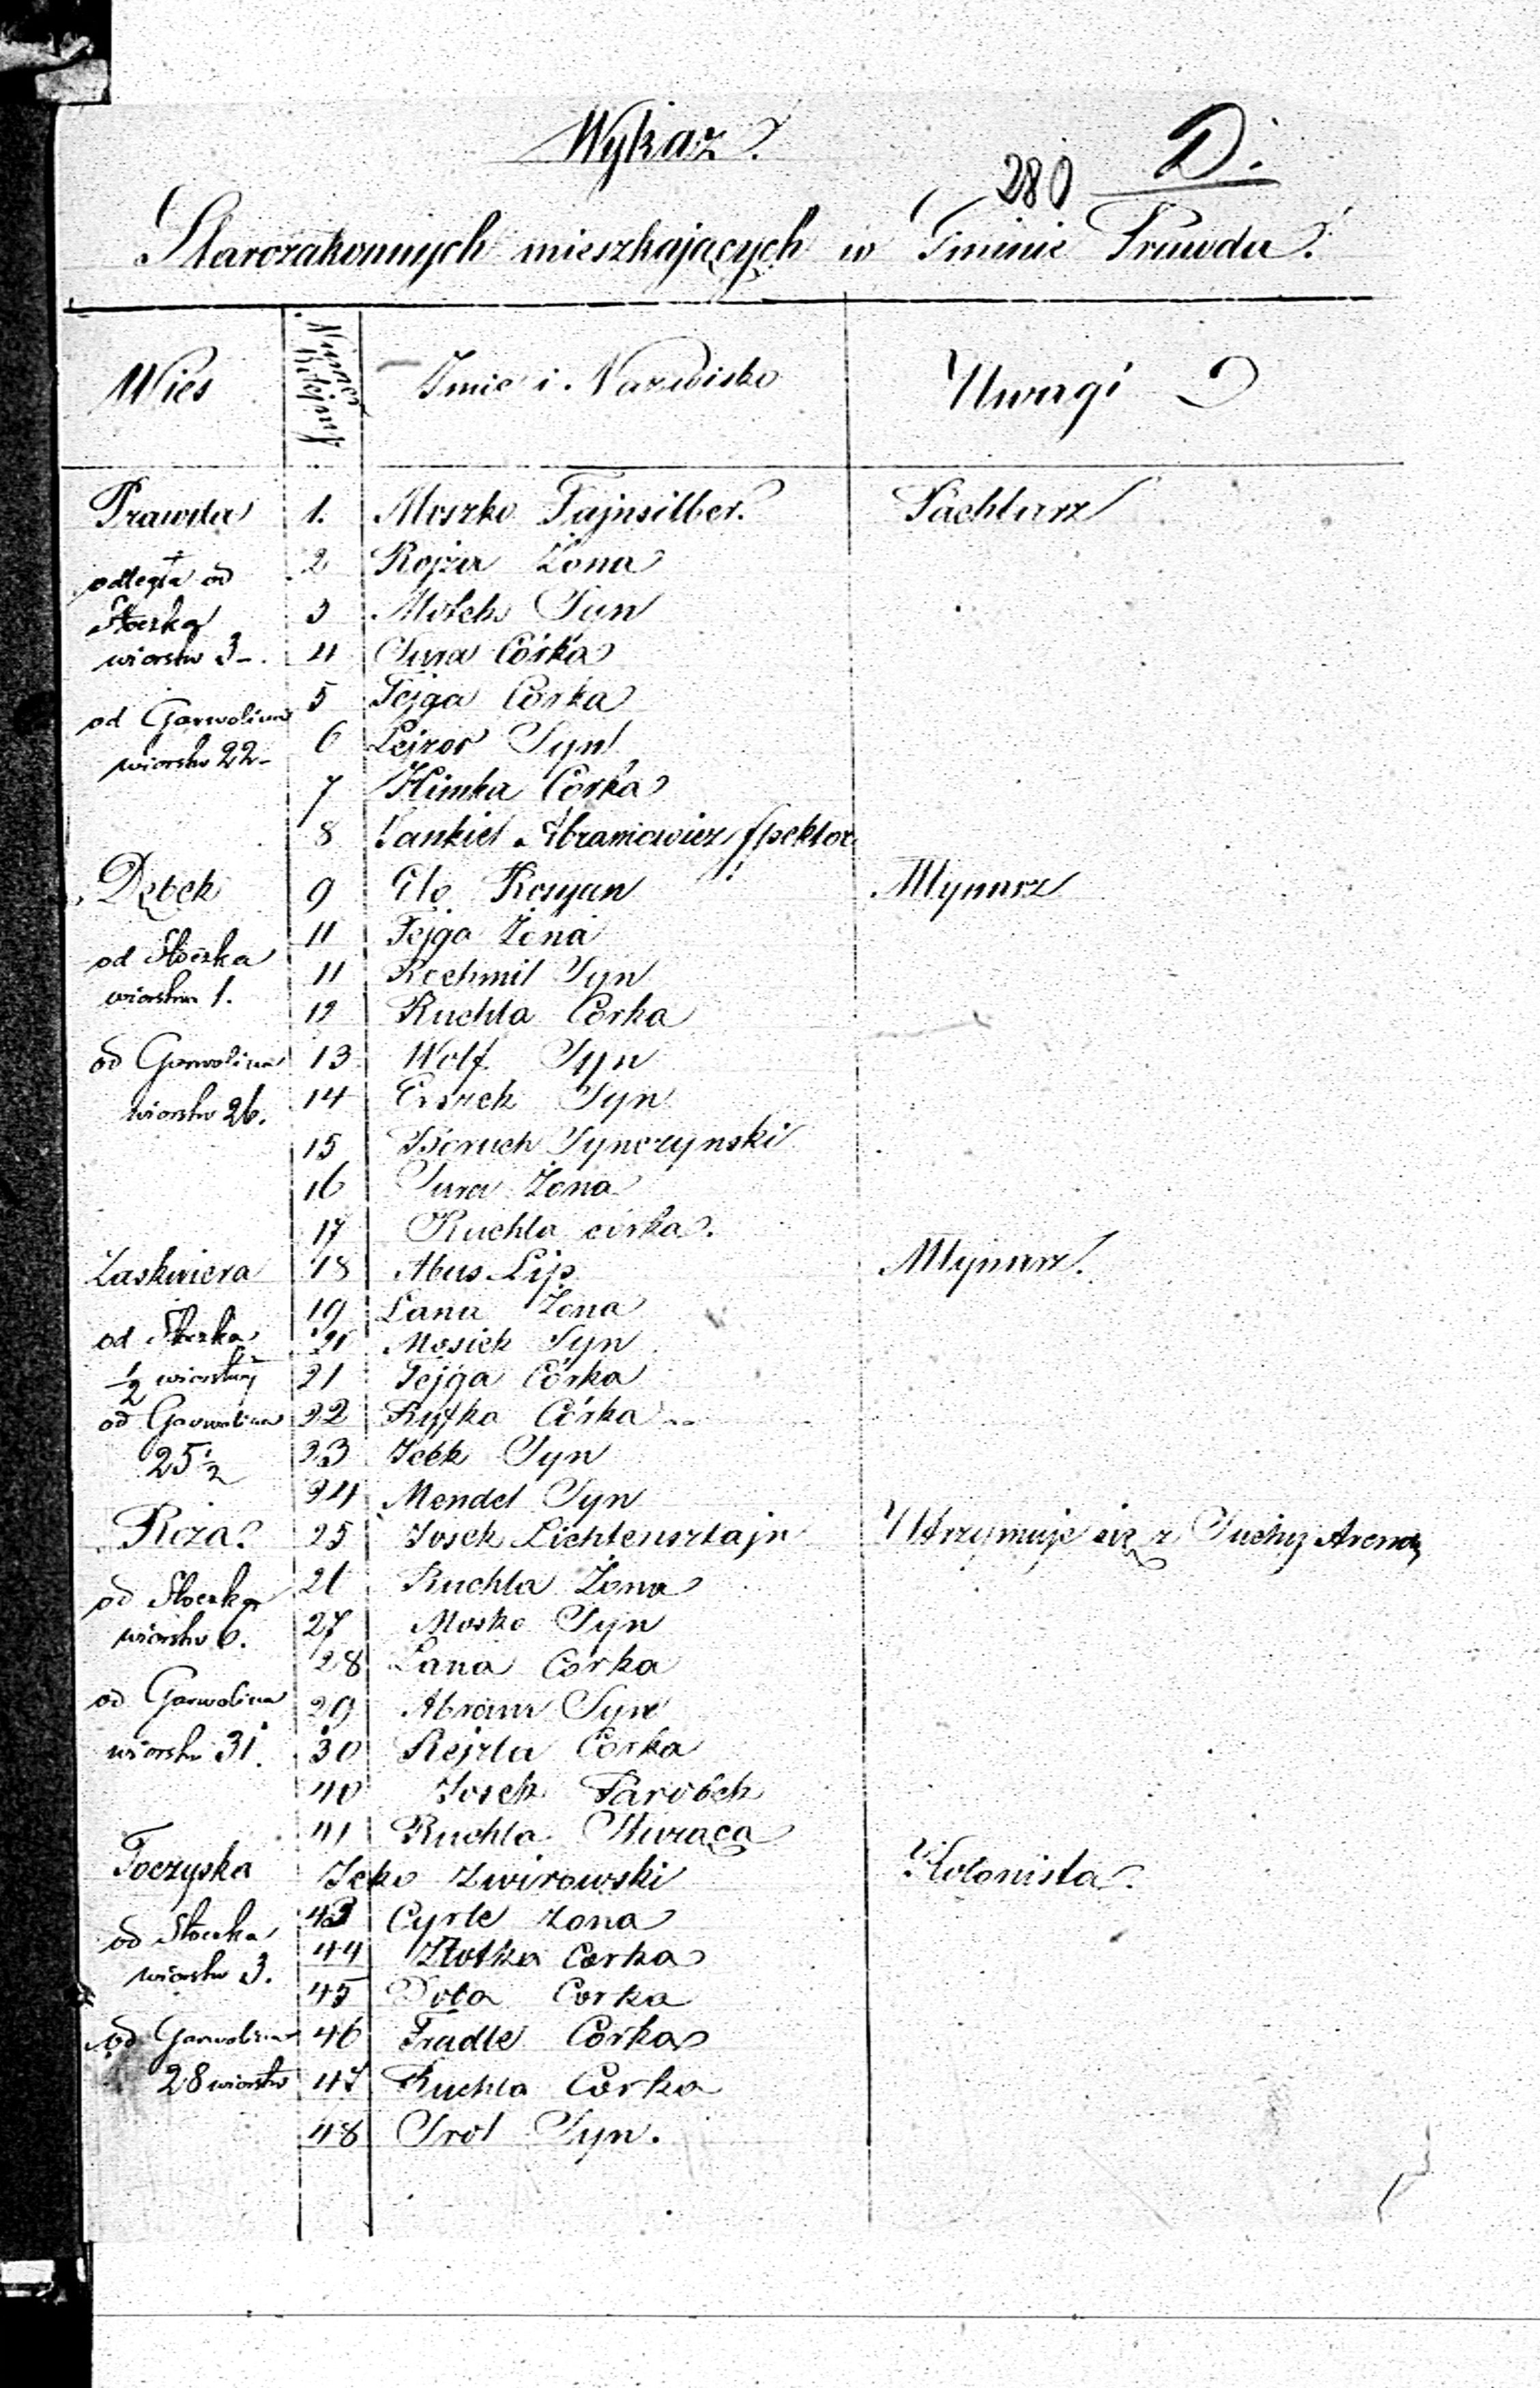 Wykaz.
280 D.
Starozakonnych mieszkających w Gminie Prawda.
Wies Numer Kolejny Imie i Nazwisko Uwagi
Prawda 1. Moszko Fajnsilber. Pachtarz
2 Rojza Żona
odległa od
Stoczka 3 Syn
wiorstw 3-. 4 Sura Córka
5 Fejga Córka
od Garwolina
6 Lejzor Syn
wiorstw 22-
7 Himka Córka
8 Jankiel Abramowicz Spektor
Dębek 9 Ele Rosyan Młynarz
11 Fejga Żona
od Stoczka
11 Rochmil Syn
wiorstwa 1.
12 Ruchla Córka
od Garwolina 13 Wolf Syn
wiorstw 26. 14 Syn
15 Boruch Synczynski
16 Sura Żona
17 Ruchla córka.
Zaskwiera 18 Abus Lip Młynarz.
19 Łana Żona
od Stoczka 20 Mosiek Syn
1/2 wiorsty 21 Fejga Córka
od Garwolina 22 Ryfka Córka
25 1/2 23 Icek Syn
24 Mendel Syn
Róża 25 Josek Lichtensztajn Utrzymuje się z Suchej Arendy
od Stoczka 26 Ruchla Żona
wiorstw 6. 27 Mosko Syn
28 Łana Corka
od Garwolina 29 Abram Syn
wiorstw 31. 30 Rejzla Corka
40 Josek Parobek
41 Ruchla Służąca
Toczyska Icko Zwirowski Kolonista
od Stoczka 43 Cyrle Zona
44 Złotka Corka
wiorstw 3.
45 Doba Corka
od Garwolina 46 Fradle Córka
28 wiorstw 47 Ruchla Corka
48 Srol Syn.